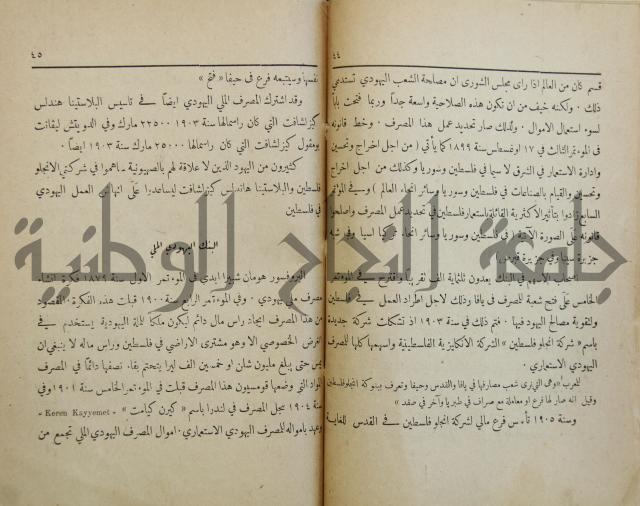 ٤٤
قسم كان من العالم اذا راى مجلس الشورى ان مصلحة الشعب اليهودي تستدعي
ذلك . ولكنه خيف من ان تكون هذه الصلاحية واسعة جداً وربما فتحت باباً
لسوء استعمال الاموال . ولذلك صار تحديد عمل هذا المصرف . وخط قانونه
في الموءتمر الثالث في ١٧ اوغسطس سنة ١٨٩٩ كما يأتي ( من اجل اخراج وتحسين
وادارة الاستعمار في الشرق لا سيما في فلسطين وسوريا وكذلك من اجل اخراج
وتحسين والقيام بالصناعات في فلسطين وسوريا وسائر انحاء العالم ) وفي الموءتمر
السابع نادوا بتأثير الاكثرية القائلة باستعمار فلسطين في تحديد عمل المصرف واصلحوا
قانونه على الصورة الآتية ( في فلسطين وسوريا وسائر انحاء تركيا اسيا وفي شبه
جزيرة سينا وفي جزيرة قبرص )
اصحاب الاسهم في البنك يعدون ثلثماية الف تقريباً واقترح في الموءتمر
الخامس على فتح شعبة للمصرف في يافا وذلك لاجل اطراد العمل في فلسطين
ولتقوية مصالح اليهود فيها . فتم ذلك في سنة ١٩٠٣ اذ تشكلت شركة جديدة
باسم « شركة انجلو فلسطين » الشركة الانكليزية الفلسطينية واسهمها كلها للمصرف
اليهودي الاستعماري .
للمعرب « وهي التي نرى شعب مصارفها في يافا والقدس وحيفا وتعرف ببنوكة انجلو فلسطين
وقيل انه صار لها فرع او معاملة مع صراف في طبريا وآخر في صفد »
وسنة ١٩٠٥ تأسس فرع مالي لشركة انجلو فلسطين في القدس للغاية
٤٥
نفسها وسيتبعه فرع في حيفا « فتح »
وقد اشترك المصرف الملي اليهودي ايضاً في تاسيس البلاستينا هندلس
كيزلشافت التي كان راسمالها سنة ١٩٠٣ ٢٢٥٠٠ مارك وفي الدويتش ليفانت
بومفول كيزلشافت التي كان راسمالها ٢٥٠٠٠ مارك سنة ١٩٠٣ ايضاً .
كثيرون من اليهود الذين لا علاقة لهم بالصهيونية ساهموا في شركتي الانجلو
فلسطين والبلاستينا هاندلس كيزلشافت ليساعدوا على انهاض العمل اليهودي
في فلسطين
البنك اليهودي الملي
البروفسور هومان شبيرا ابدى في الموءتمر الاول سنة ١٨٧٩ فكرة انشاء
مصرف ملي يهودي . وفي الموءتمر الرابع سنة ١٩٠٠ قبلت هذه الفكرة . المقصود
من هذا المصرف ايجاد راس مال دائم ليكون ملكاً للملة اليهودية يستخدم في
الغرض الخصوصي الا وهو مشترى الاراضي في فلسطين وراس ماله لا ينبغي ان
يمس حتى يبلغ مليون شلن او خمسين الف ليرا يتحتم بقاء نصفها دائماً في المصرف
المواد التي وضعها قومسيون هذا المصرف قبلت في الموءتمر الخامس سنة ١٩٠١ وفي
سنة ١٩٠٤ سجل المصرف في لندرا باسم « كيرن كيامت » - Keren Kayyemet -
وعهد بامواله للمصرف اليهودي الاستعماري . اموال المصرف اليهودي الملي تجمع من
جامعة النجاح الوطنية